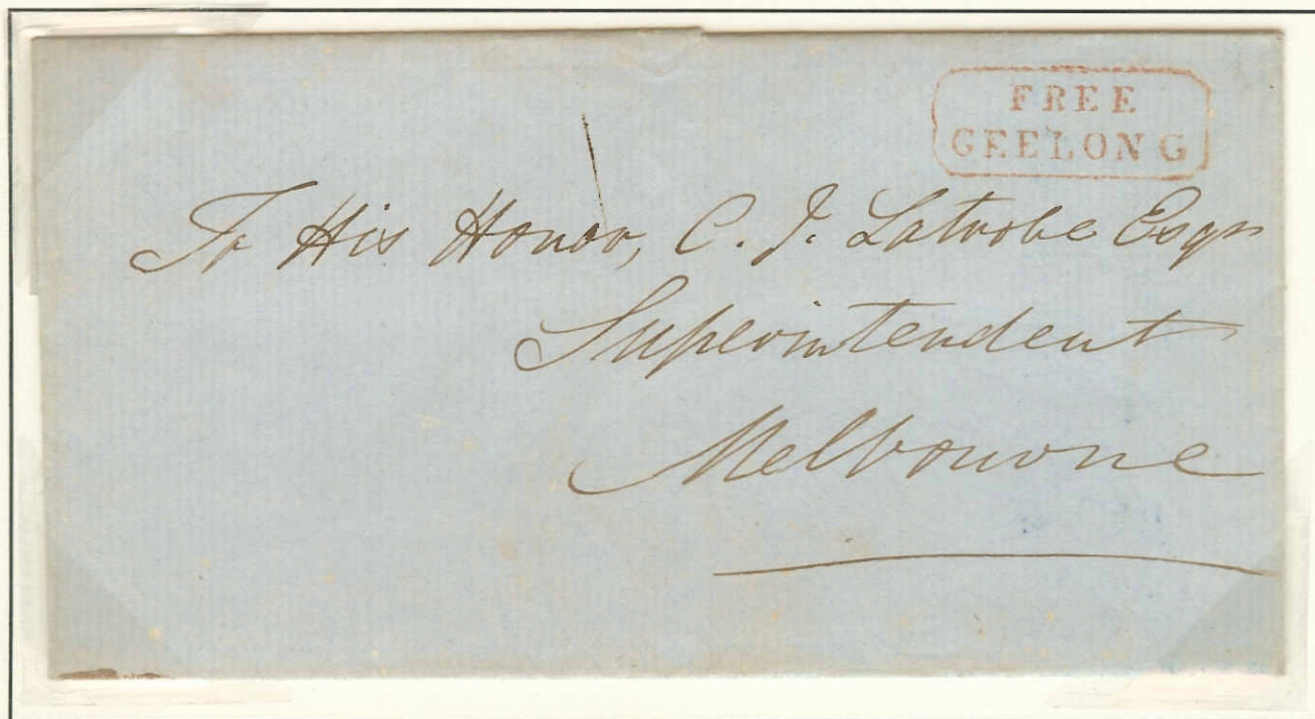 FREE
GEELONG
To His Honor, C. J. Latrobe Esqr
Superintendent
Melbourne